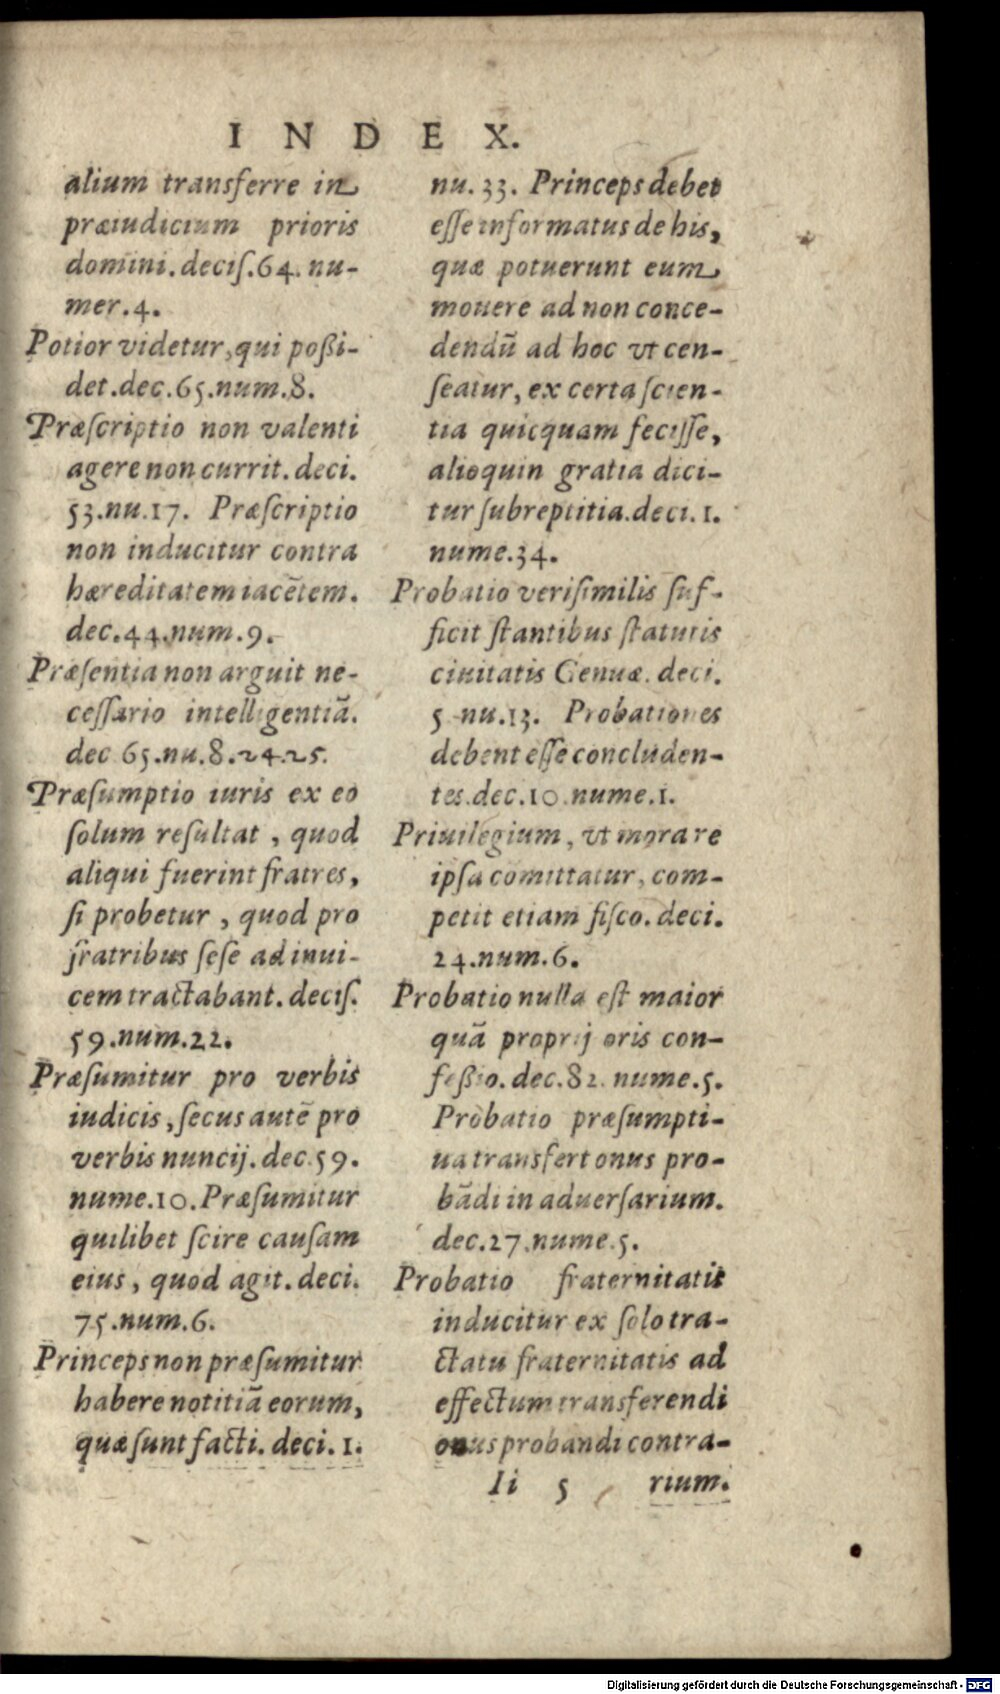 INDEX.
alium transferre in
præiudicium prioris
domini. decis. 64. nu-
mer. 4.
Potior videtur, qui poßi-
det. dec. 65. num. 8.
Præſcriptio non valenti
agere non currit. deci.
53. nu. 17. Præſcriptio
non inducitur contra
hæreditatem iacẽtem.
dec. 44. num. 9.
Præſentia non arguit ne-
ceſſario intelligentiã.
dec 65. nu. 8. 24. 25.
Præſumptio iuris ex eo
ſolum reſultat, quod
aliqui fuerint fratres,
ſi probetur, quod pro
fratribus ſeſe ad inui-
cem tractabant. deciſ.
59. num. 22.
Præſumitur pro verbis
iudicis, ſecus autẽ pro
verbis nuncij. dec. 59.
nume. 10. Præſumitur
quilibet ſcire cauſam
eius, quod agit. deci.
75. num. 6.
Princeps non præſumitur
habere notitiã eorum,
quæ ſunt facti. deci. 1.
nu. 33. Princeps debet
eſſe informatus de his,
quæ potuerunt eum
mouere ad non conce-
dendũ ad hoc vt cen-
ſeatur, ex certa ſcien-
tia quicquam feciſſe,
alioquin gratia dici-
tur ſubreptitia. deci. 1.
nume. 34.
Probatio veriſimilis ſuf-
ficit ſtantibus ſtatutis
ciuitatis Genuæ. deci.
5 nu. 13. Probationes
debent eſſe concluden-
tes. dec. 10 nume. 1.
Priuilegium, vt mora re
ipſa comittatur, com-
petit etiam fiſco. deci.
24. num. 6.
Probatio nulla eſt maior
quã proprij oris con-
feßio. dec. 82. nume. 5.
Probatio præſumpti-
ua transfert onus pro-
bãdi in aduerſarium.
dec. 27. nume. 5.
Probatio fraternitatis
inducitur ex ſolo tra-
ctatu fraternitatis ad
effectum transferendi
onus probandi contra-
Ii 5 rium.
Digitalisierung gefördert durch die Deutsche Forschungsgemeinschaft - DFG